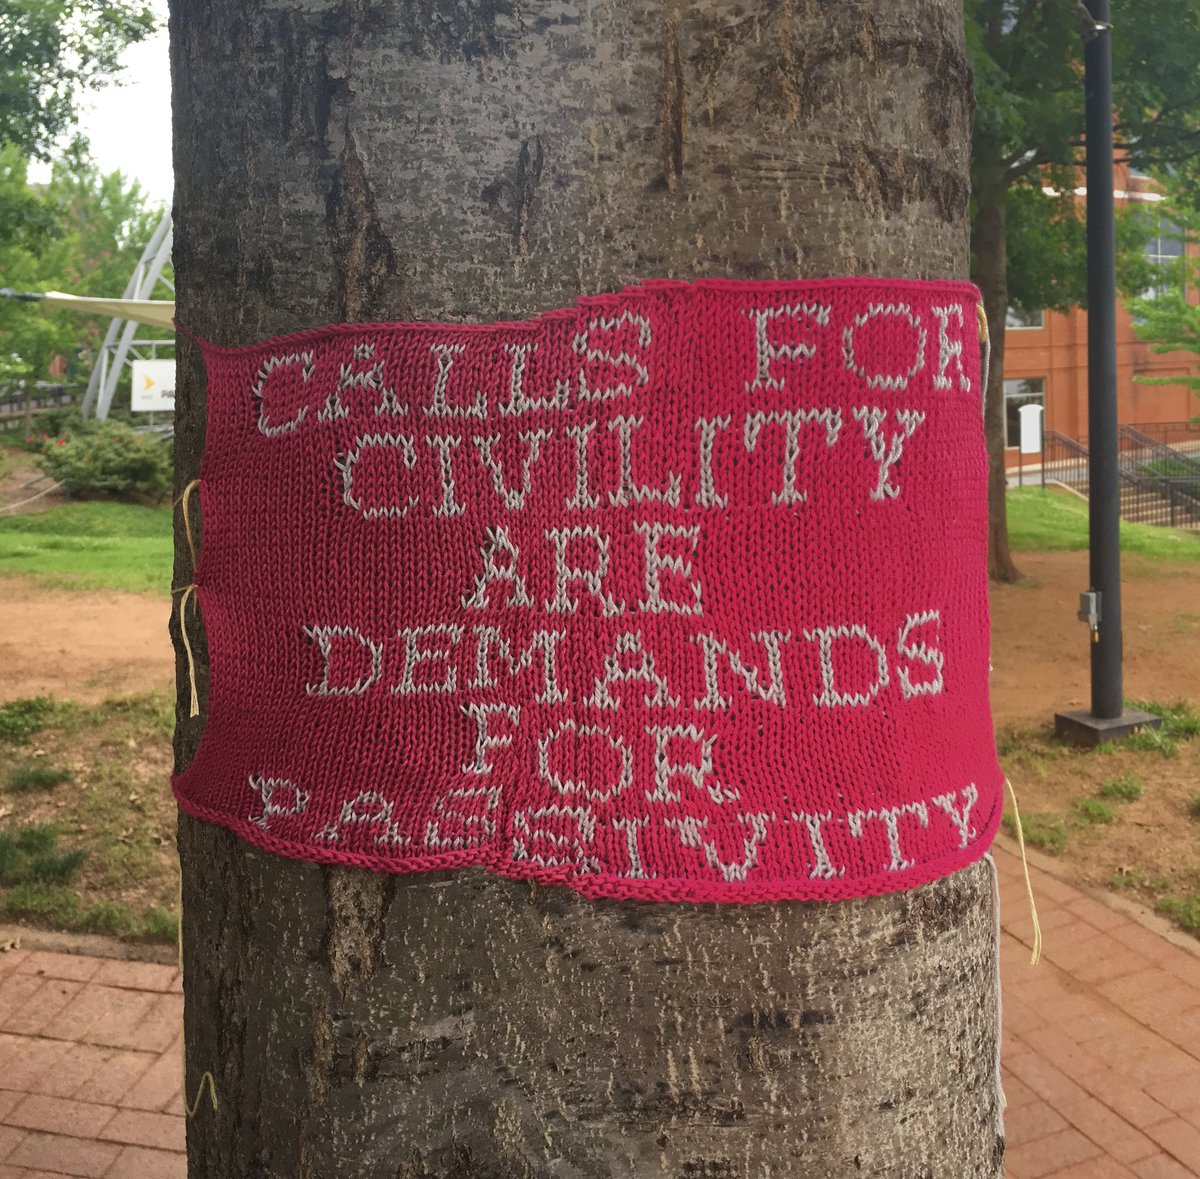 CALLS FOR
CIVILITY
ARE
DEMANDS
FOR
PASSIVITY